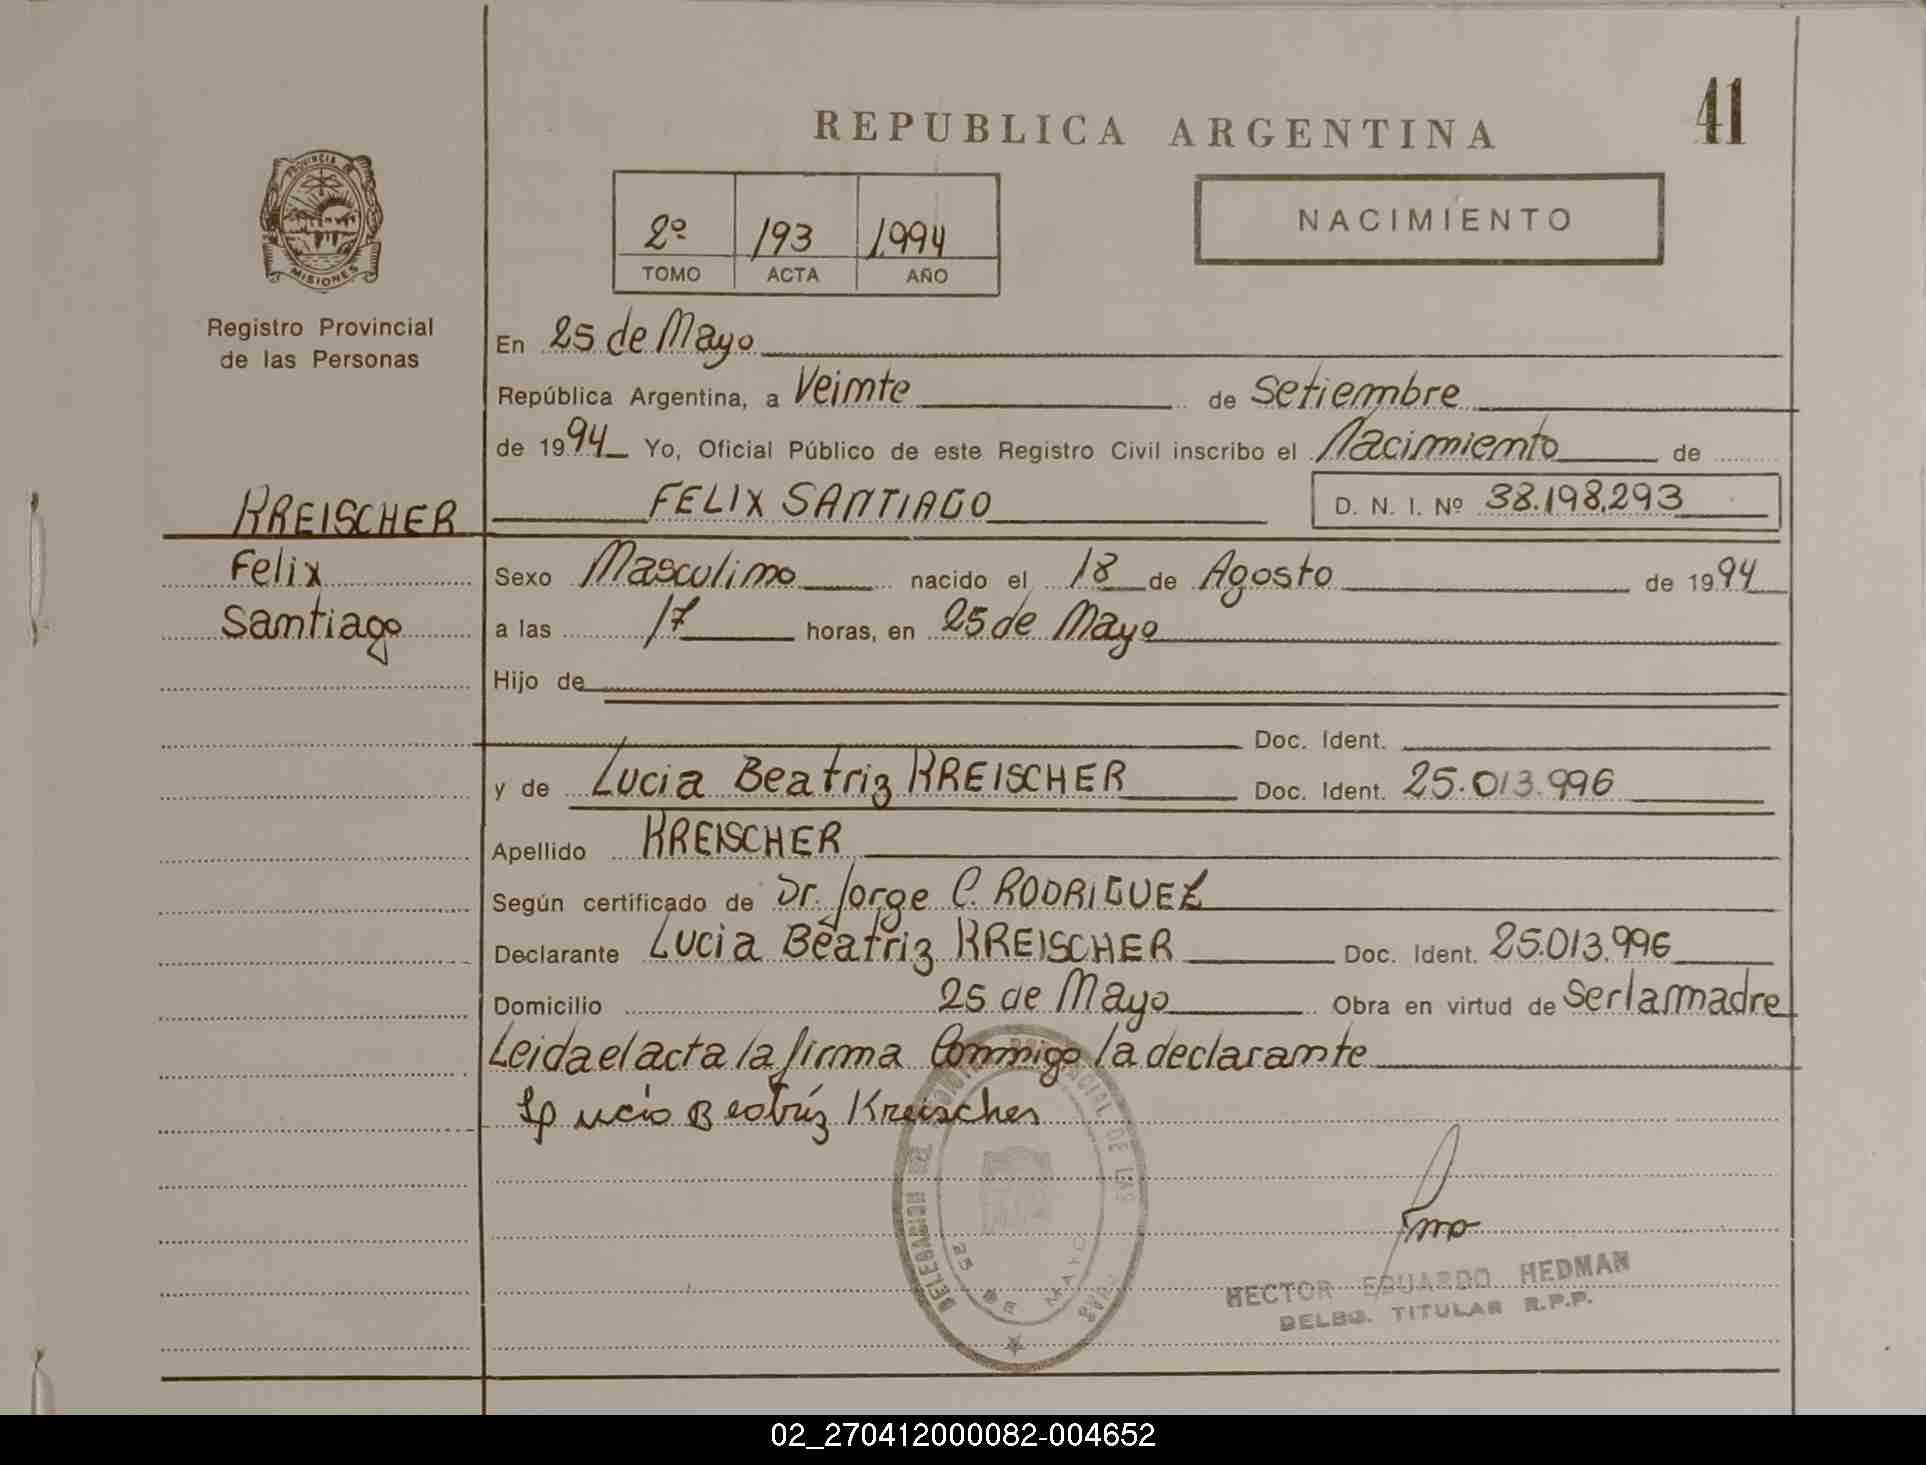 41
REPUBLICA ARGENTINA
PROVINCIA
MISIONES
2º 193 1994
TOMO ACTA AÑO
NACIMIENTO
Registro Provincial
de las Personas
En 25 de Mayo
República Argentina, a Veinte de Setiembre
de 1994 Yo, Oficial Público de este Registro Civil inscribo el Nacimiento de
KREISCHER FELIX SANTIAGO D. N. I. Nº 38.198,293
Felix Sexo Masculino nacido el 18 de Agosto de 1994
Santiago a las 17 horas, en 25 de Mayo
Hijo de
Doc. Ident.
y de Lucia Beatriz KREISCHER Doc. Ident. 25.013.996
Apellido KREISCHER
Según certificado de Dr. Jorge C. RODRIGUEZ
Declarante Lucia Beatriz KREISCHER Doc. Ident. 25.013.996
Domicilio 25 de Mayo Obra en virtud de Ser la madre
Leida el acta la firma Conmigo la declarante
Lucia Beatriz Kreischer
DE LAS
25 DE MAYO
HECTOR EDUARDO HEDMAN
DELEG. TITULAR R.P.P.
02_270412000082-004652